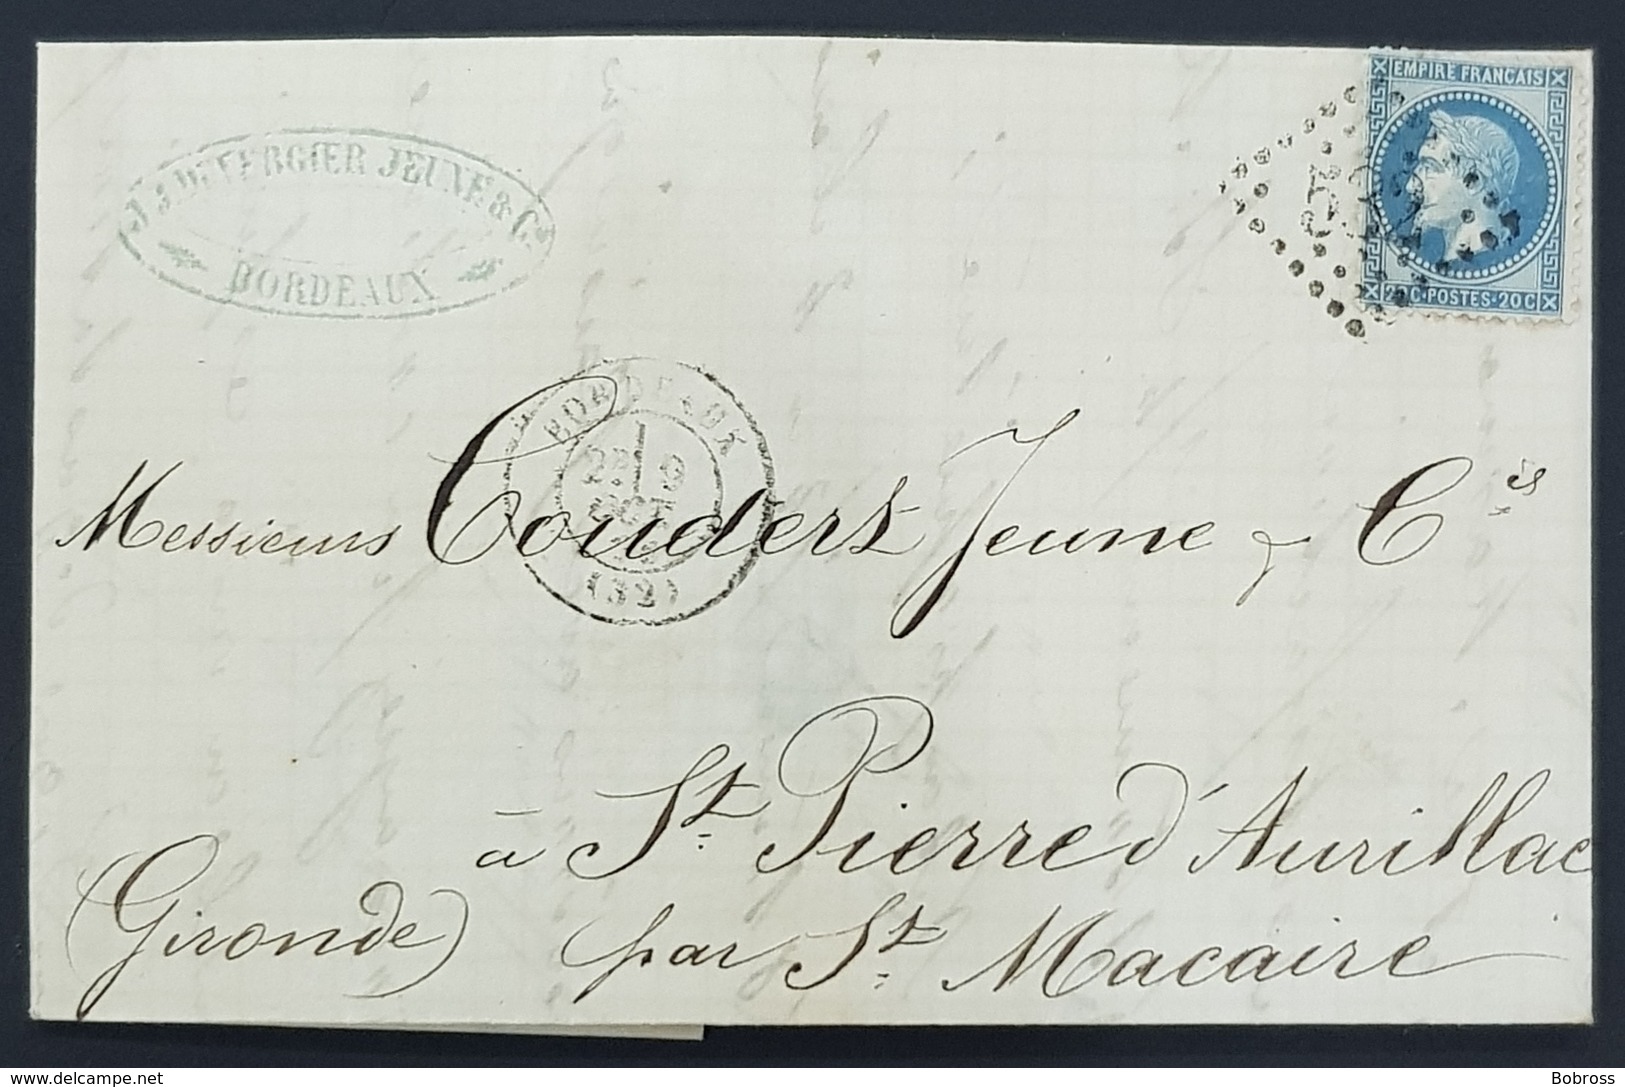 EMPIRE FRANCAIS
20C·POSTES·20C
532
JEUNE & Cie
BORDEAUX
BORDEAUX
(32)
Messieurs Couderc Jeune & Cies
à St. Pierre d'Aurillac
(Gironde) par St. Macaire
delcampe.net
Bobross